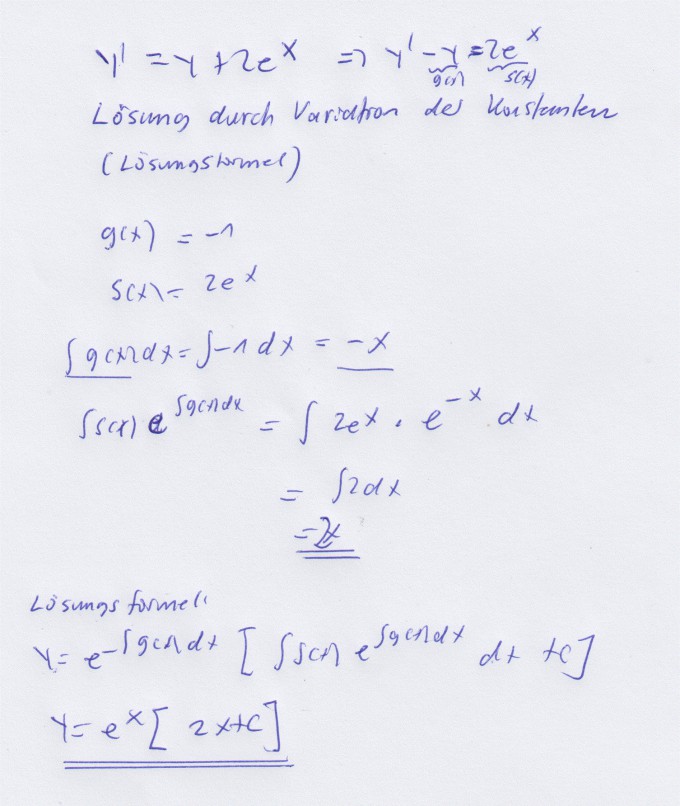 y' = y + 2e^x => y' - y = 2e^x
g(x) s(x)
Lösung durch Variation der Konstanten
(Lösungsformel)
g(x) = -1
s(x) = 2e^x
∫ g(x) dx = ∫ -1 dx = -x
∫ s(x) e^{∫ g(x) dx} = ∫ 2e^x · e^{-x} dx
= ∫ 2 dx
= 2x
Lösungsformel:
y = e^{-∫ g(x) dx} [ ∫ s(x) e^{∫ g(x) dx} dx + C ]
y = e^x [ 2x + C ]